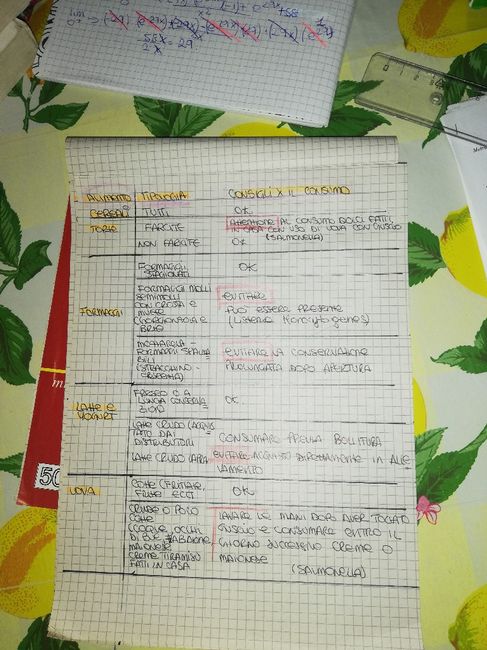 58x = 29
2x
ALIMENTO TIPOLOGIA CONSIGLI X IL CONSUMO
CEREALI TUTTI OK
TORTE FARCITE ATTENZIONE AL CONSUMO DOLCI FATTI
IN CASA CON USO DI UOVA CON GUSCIO
(SALMONELLA)
NON FARCITE OK
FORMAGGI FORMAGGI
STAGIONATI OK
FORMAGGI MOLLI
SEMIMOLLI EVITARE
CON CROSTA E PUO' ESSERE PRESENTE
MUFFE (Listeria Monocytogenes)
(GORGONZOLA E
BRIE
MOZZARELLA - EVITARE LA CONSERVAZIONE
FORMAGGI SPALMA PROLUNGATA DOPO APERTURA
BILI
(STRACCHINO -
LATTE E
YOGURT FRESCO O A
LUNGA CONSERVA OK
ZIONE
LATTE CRUDO (ACQUIS
TATO DAI CONSUMARE PREVIA BOLLITURA
DISTRIBUTORI
LATTE CRUDO EVITARE ACQUISTO DIRETTAMENTE IN ALLE
VAMENTO
UOVA COTTE (FRITTATE, OK
FRITTE ECC)
CRUDE O POCO LAVARE LE MANI DOPO AVER TOCATO
COTTE GUSCIO E CONSUMARE ENTRO IL
(COQUE, OCCHI GIORNO SUCCESSIVO CREME O
DI BUE, ZABAIONE, MAIONESE
MAIONESE (SALMONELLA)
CREME TIRAMISU
FATTI IN CASA
50